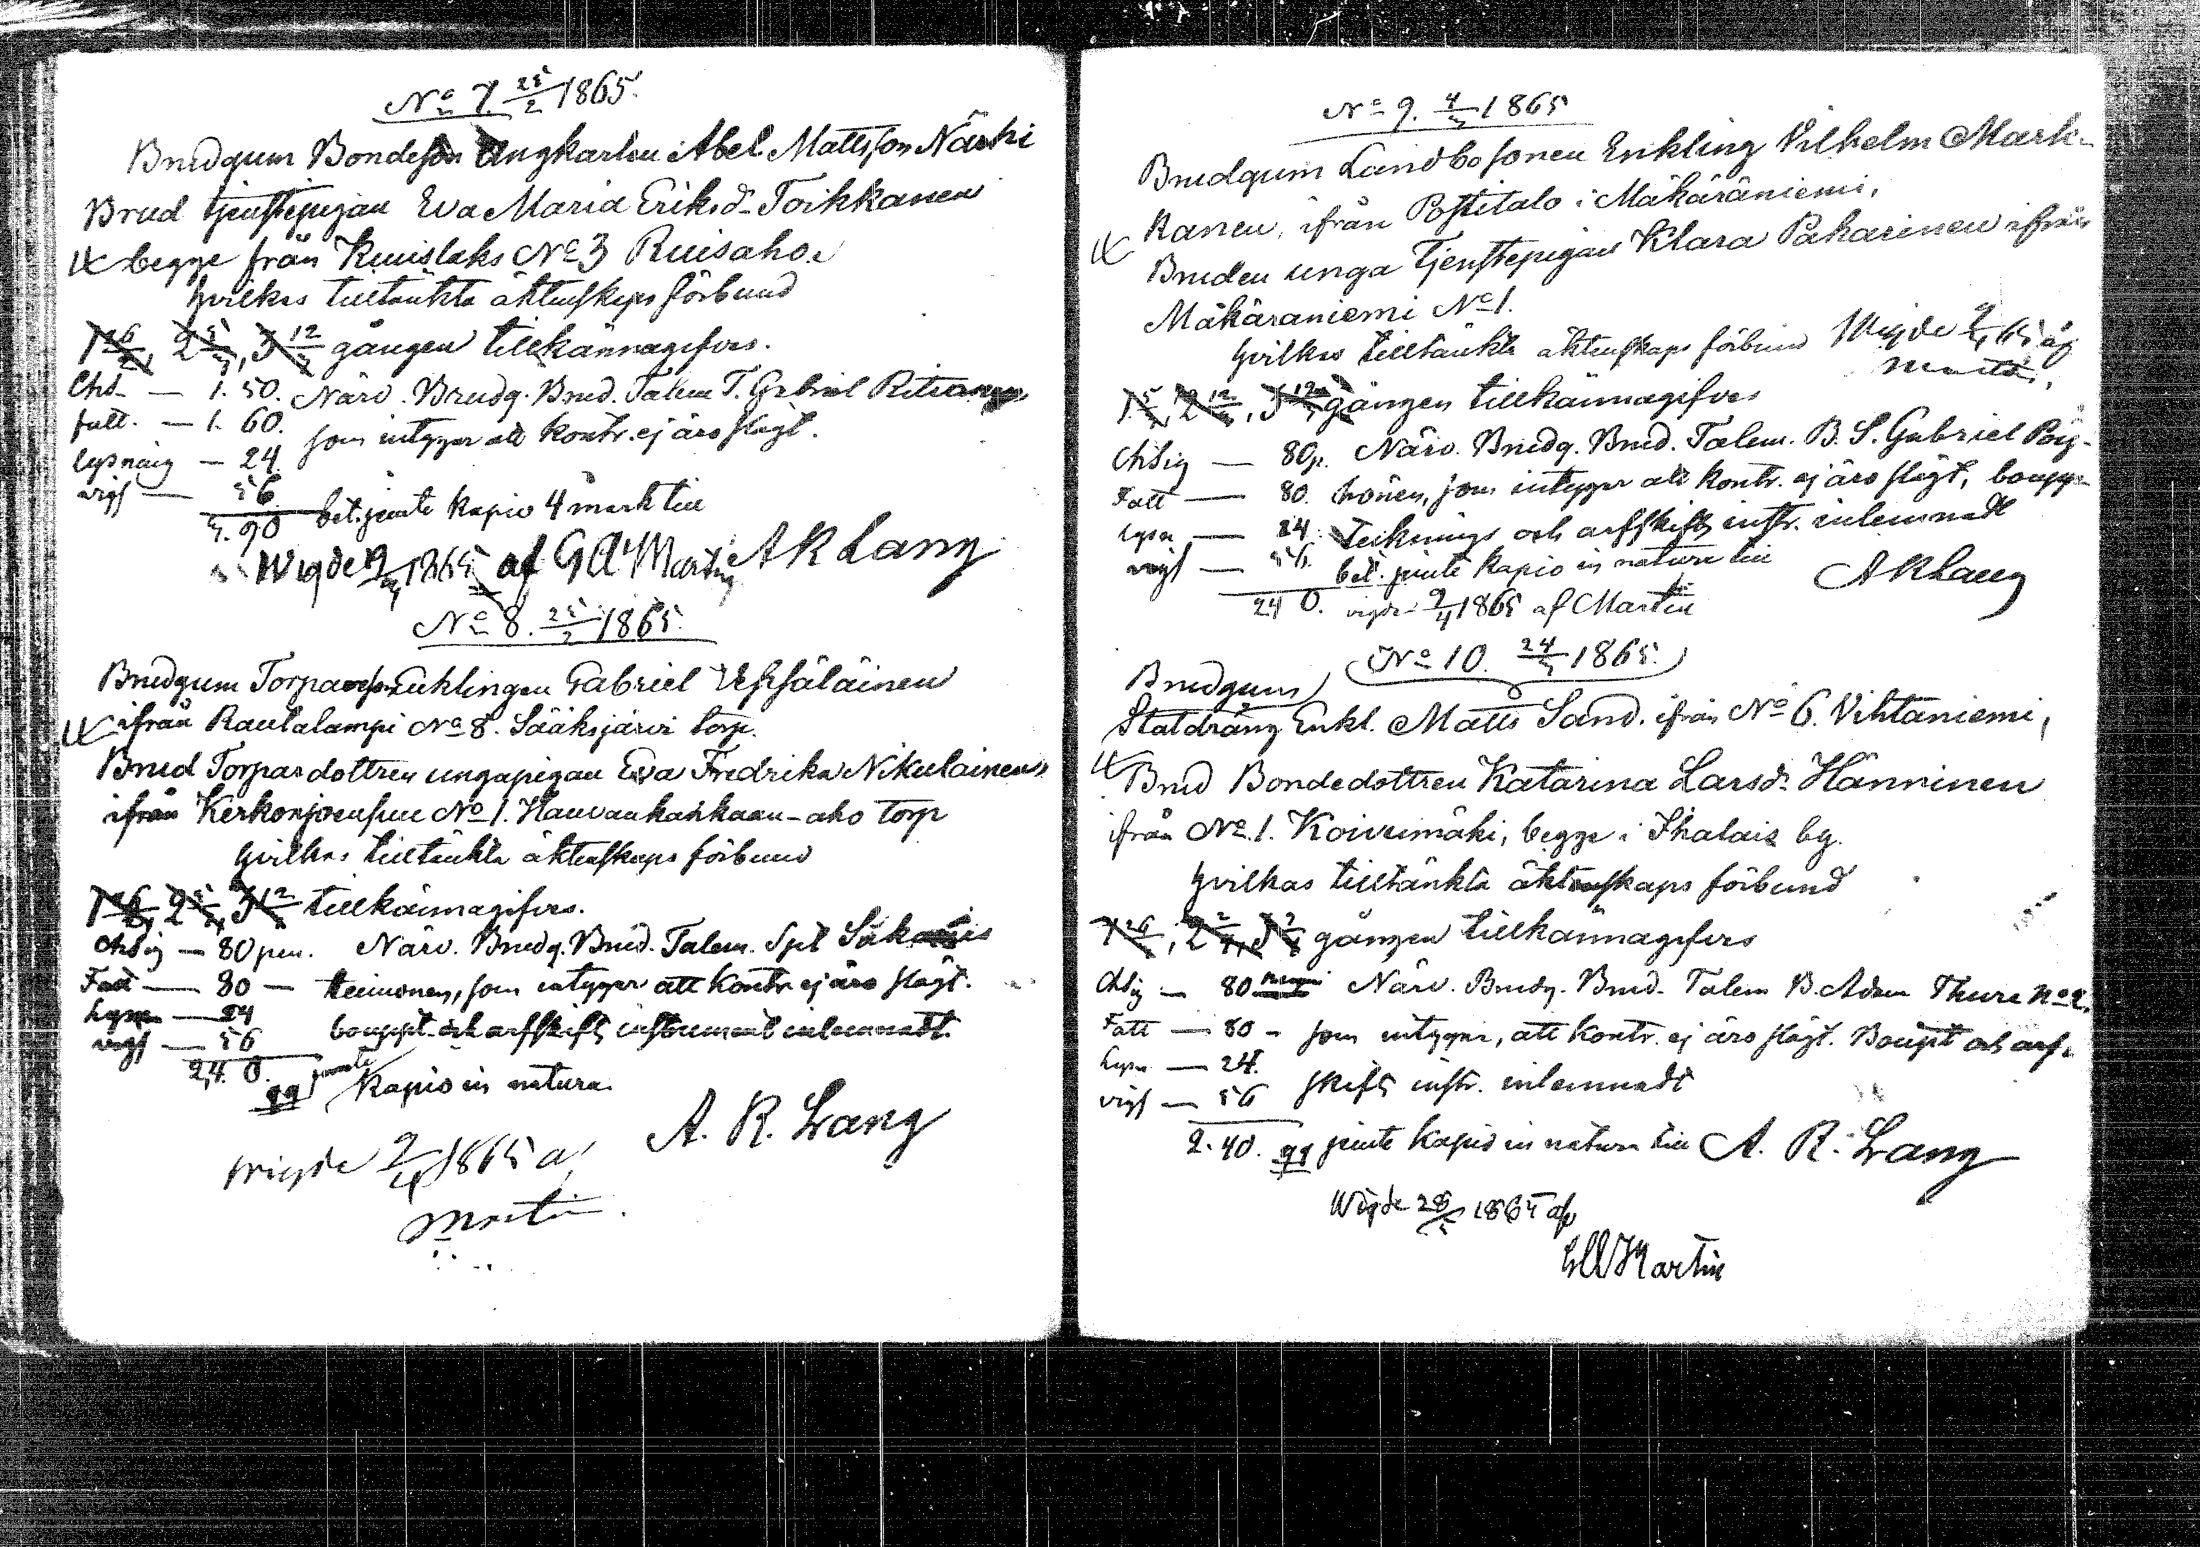 No 7. 25/2 1865.
Brudgum Bondeson Ungkarlen Abel Mattsson Närhi
Brud tjenstepigan Eva Maria Eriksd. Toikkanen
begge från Kuuslaks No 3 Ruisaho.
hvilkas tilltänkta äktenskaps förbund
1 26/2, 2 5/3, 3 12/3 gången tillkännagifves.
Chs. — 1. 50. Närv. Brudg. Brud. Talem. T. Gabriel
fatt. — 1. 60. som intygar att kontr. ej äro slägt.
lysning — 24
vigs — 56
3. 90 bet. jemte kapio 4 mark till
Wigde 9/4 1865 af G A Martin A R Lang
No 8. 25/2 1865.
Brudgum Enklingen Gabriel Vessäläinen
ifrån Rautalampi No 8. Sääksjärvi torp.
Brud Torpardottren unga pigan Eva Fredrika Nikulainen
ifrån Kerkonjoensuu No 1. torp
hvilkas tilltänkta äktenskaps förbund
1 26/2, 2 5/3, 3 12/3 tillkännagifves.
Chsig — 80 pen. Närv. Brudg. Brud. Talem.
Fatt — 80 — som intygar att kontr. ej äro slägt.
Lysn — 24 bouppt. och arfskifts instrument inlemnadt.
vigs — 56
2,4 0. jemte
Kapio in natura.
A. R. Lang
wigde 9/4 1865 af
Martin.
No 9. 4/3 1865
Brudgum Landbosonen Enkling Vilhelm Mark-
kanen, ifrån Postitalo i Mäkäräniemi,
Bruden unga Tjenstepigan Klara Pakarinen ifrån
Mäkäraniemi No 1.
hvilkas tilltänkta äktenskaps förbund Wigde 9/4 65 af
Martin.
1 5/3, 2 12/3, 3 gången tillkännagifves
Chsig — 80 p. Närv. Brudg. Brud. Talem. B. S. Gabriel Pöy-
Fatt — 80. hönen, som intygar att kontr. ej äro slägt, boupp-
Lysn — 24. tecknings och arfskifts instr. inlemnadt
vigs — 56. bet. jemte kapio in natura till
24 0. vigde 9/4 1865 af Martin A R Lang
No 10. 24/3 1865.
Brudgum
Statdräng Enkl. Matts Sand. ifrån No 6. Vihtaniemi,
Brud Bondedottren Katarina Larsd. Hänninen
ifrån No. 1. Koivumäki, begge i Ihalais by.
hvilkas tilltänkta äktenskaps förbund
1 26/3, 2 2/4, 3 gången tillkännagifves
Chsig — 80 Närv. Brudg. Brud. Talem B. Adam Thure No 2.
Fatt — 80 — som intygar, att kontr. ej äro slägt. Boupt och arf-
Lysn — 24. skifts instr. inlemnadt
vigs — 56
2. 40. jemte kapio in natura till A. R. Lang
Wigde 28/5 1865 af
G A Martin